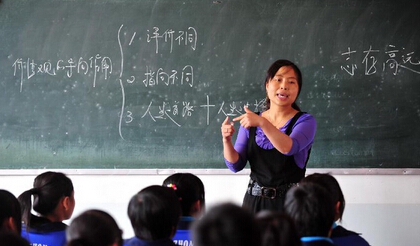 价值观的导向作用
1. 评价不同
2. 指向不同
3. 人生道路 十 人生
志存高远